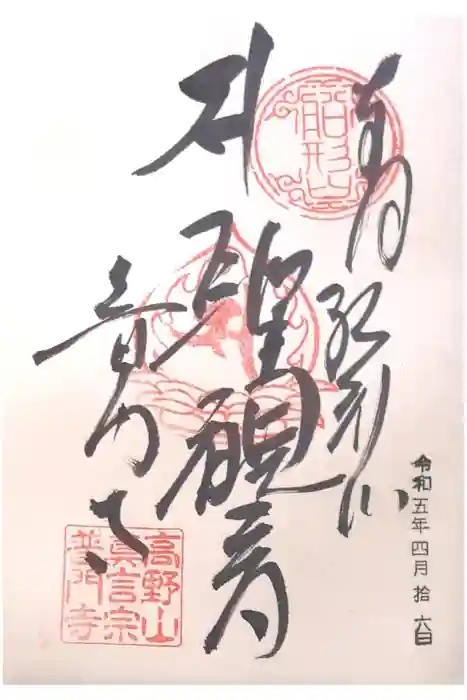 奉拝
船形山
船形山
令和五年四月拾六日
聖観音
普門寺
高野山
真言宗
普門寺